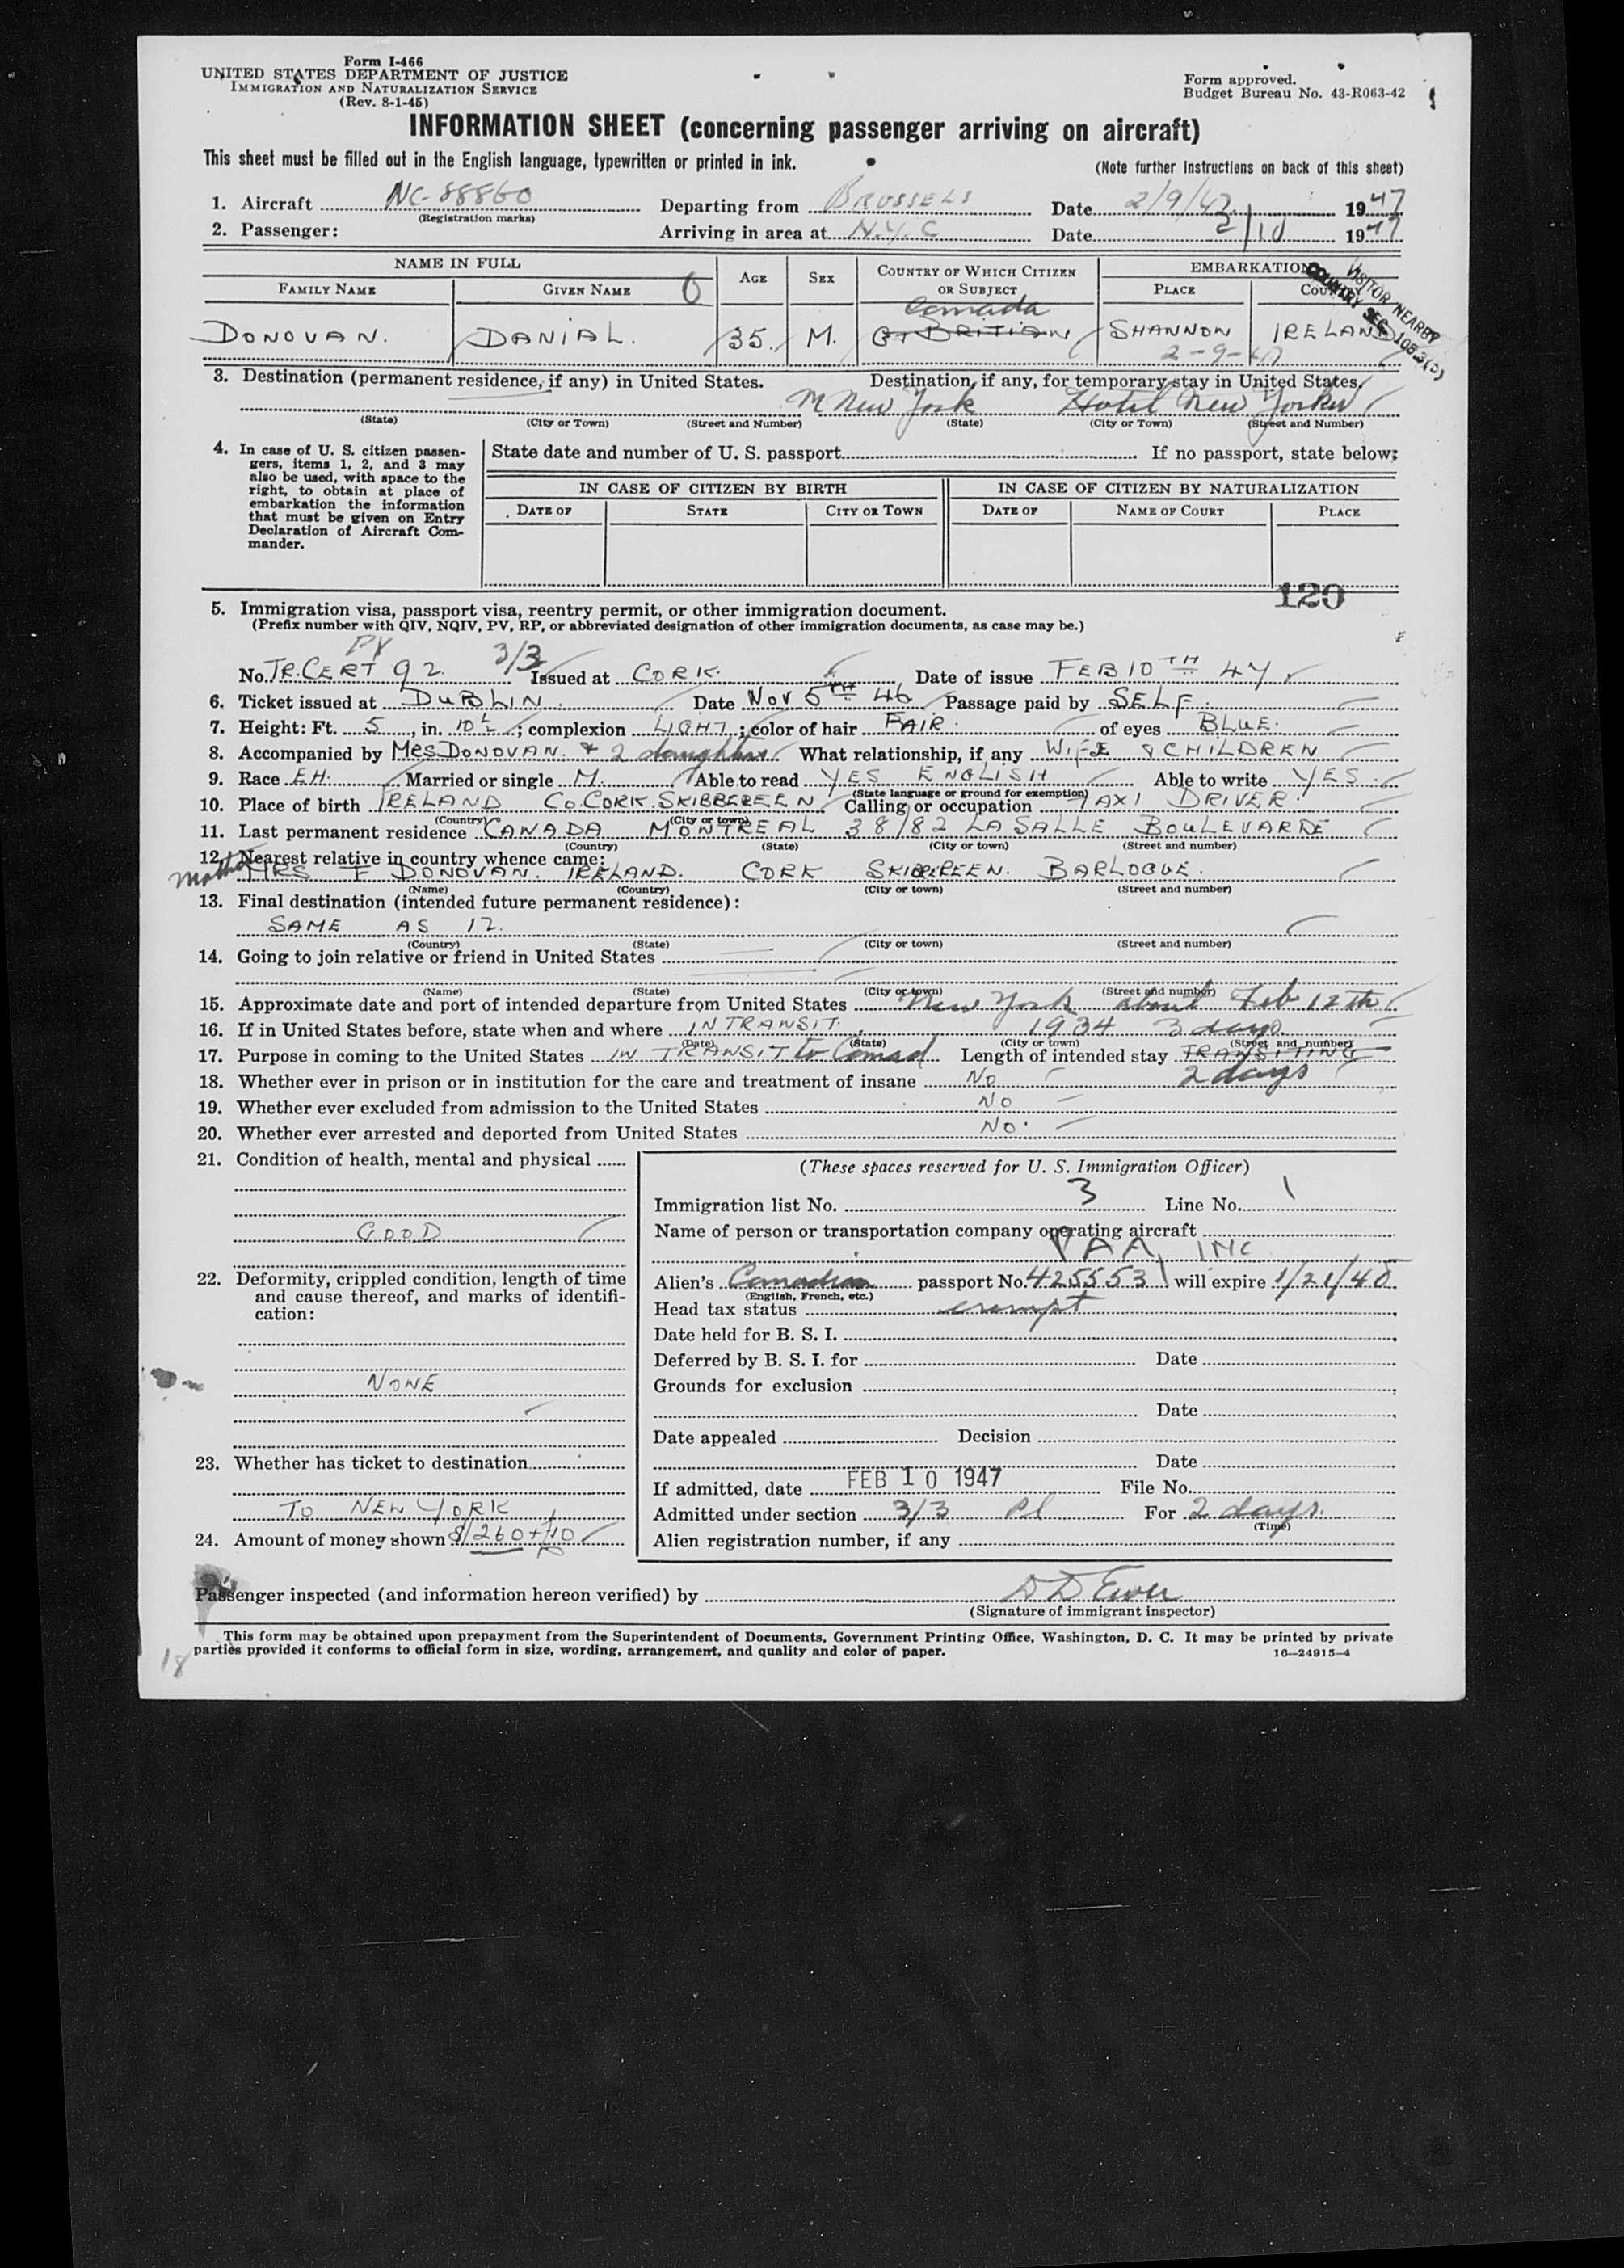 Form I-466
UNITED STATES DEPARTMENT OF JUSTICE
IMMIGRATION AND NATURALIZATION SERVICE
(Rev. 8-1-45)
Form approved.
Budget Bureau No. 43-R063-42
INFORMATION SHEET (concerning passenger arriving on aircraft)
This sheet must be filled out in the English language, typewritten or printed in ink.
(Note further instructions on back of this sheet)
1. Aircraft NC-88860 Departing from BRUSSELS Date 2/9/47 1947
(Registration marks)
2. Passenger: Arriving in area at N.Y.C Date 2/10 1947
NAME IN FULL AGE SEX COUNTRY OF WHICH CITIZEN OR SUBJECT EMBARKATION
FAMILY NAME GIVEN NAME PLACE COUNTRY
VISITOR NEARBY
COUNTRY SEC
Canada
DONOVAN. DANIAL. 35. M. GT BRITIAN SHANNON IRELAND
2-9-47
3. Destination (permanent residence, if any) in United States. Destination, if any, for temporary stay in United States.
New York Hotel New Yorker
(State) (City or Town) (Street and Number) (State) (City or Town) (Street and Number)
4. In case of U. S. citizen passengers, items 1, 2, and 3 may also be used, with space to the right, to obtain at place of embarkation the information that must be given on Entry Declaration of Aircraft Commander.
State date and number of U. S. passport If no passport, state below:
IN CASE OF CITIZEN BY BIRTH IN CASE OF CITIZEN BY NATURALIZATION
DATE OF STATE CITY OR TOWN DATE OF NAME OF COURT PLACE
120
5. Immigration visa, passport visa, reentry permit, or other immigration document.
(Prefix number with QIV, NQIV, PV, RP, or abbreviated designation of other immigration documents, as case may be.)
PV 3/3
No. TR.CERT 92 Issued at CORK. Date of issue FEB 10TH 47
6. Ticket issued at DUBLIN. Date NOV 5TH 46 Passage paid by SELF
7. Height: Ft. 5, in. 10½; complexion LIGHT; color of hair FAIR. of eyes BLUE.
8. Accompanied by MRS DONOVAN. + 2 daughters What relationship, if any WIFE & CHILDREN
9. Race EH. Married or single M. Able to read YES ENGLISH Able to write YES.
(State language or ground for exemption)
10. Place of birth IRELAND CO.CORK. SKIBBEREEN Calling or occupation TAXI DRIVER.
(Country) (City or town)
11. Last permanent residence CANADA MONTREAL 38/82 LA SALLE BOULEVARDE
(Country) (State) (City or town) (Street and number)
12. Nearest relative in country whence came:
mother MRS F DONOVAN. IRELAND. CORK SKIBBEREEN. BARLOGUE.
(Name) (Country) (City or town) (Street and number)
13. Final destination (intended future permanent residence):
SAME AS 12.
(Country) (State) (City or town) (Street and number)
14. Going to join relative or friend in United States
(Name) (State) (City or town) (Street and number)
15. Approximate date and port of intended departure from United States New York about Feb 12th
16. If in United States before, state when and where IN TRANSIT. 1934 3 days.
(Date) (State) (City or town) (Street and number)
17. Purpose in coming to the United States IN TRANSIT to Canad Length of intended stay TRANSITING
2 days
18. Whether ever in prison or in institution for the care and treatment of insane NO
19. Whether ever excluded from admission to the United States NO
20. Whether ever arrested and deported from United States NO.
21. Condition of health, mental and physical
GOOD
22. Deformity, crippled condition, length of time and cause thereof, and marks of identification:
NONE
23. Whether has ticket to destination
TO NEW YORK
24. Amount of money shown $/260+/10
(These spaces reserved for U. S. Immigration Officer)
Immigration list No. 3 Line No. 1
Name of person or transportation company operating aircraft
PAA, INC
Alien's Canadian passport No. 425553 will expire 1/21/48
(English, French, etc.)
Head tax status exempt
Date held for B. S. I.
Deferred by B. S. I. for Date
Grounds for exclusion
Date
Date appealed Decision
Date
If admitted, date FEB 10 1947 File No.
Admitted under section 3/3 For 2 days.
(Time)
Alien registration number, if any
Passenger inspected (and information hereon verified) by D D Ewer
(Signature of immigrant inspector)
This form may be obtained upon prepayment from the Superintendent of Documents, Government Printing Office, Washington, D. C. It may be printed by private
parties provided it conforms to official form in size, wording, arrangement, and quality and color of paper.
16—24915-4
18